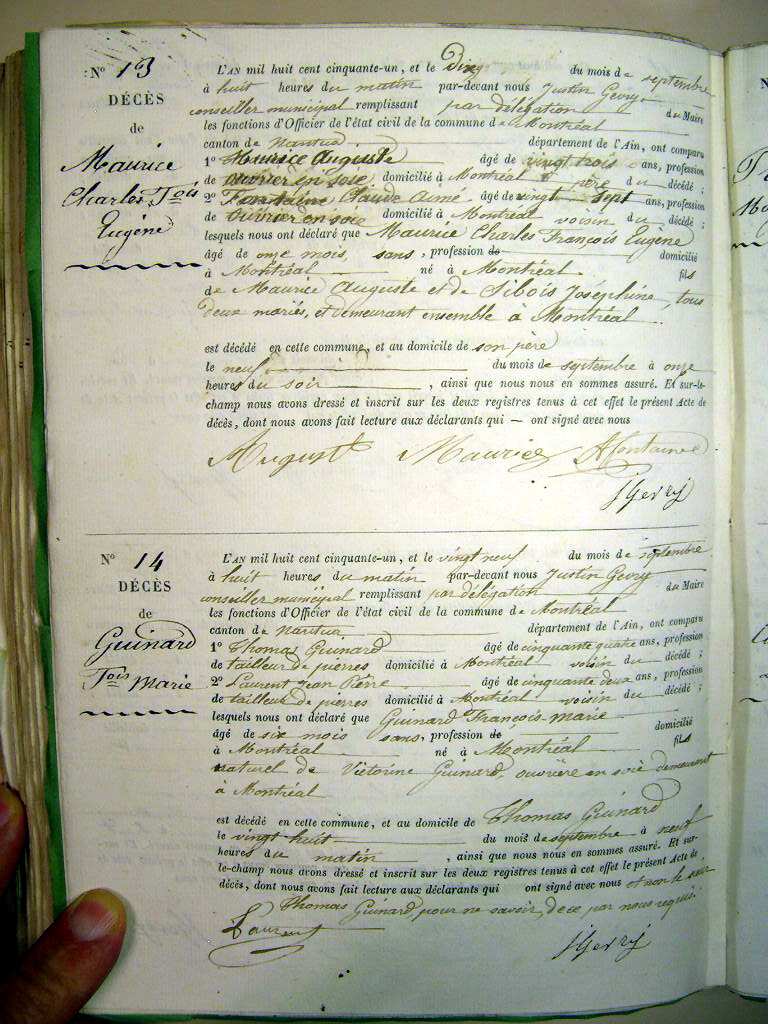 N° 13
DÉCÈS
de
Maurice
Charles Fois
Eugène
L'AN mil huit cent cinquante-un, et le Dix du mois de septembre
à huit heures du matin par-devant nous Justin Gevry
conseiller municipal remplissant par délégation du Maire
les fonctions d'Officier de l'état civil de la commune de Montréal
canton de Nantua département de l'Ain, ont comparu
1° Maurice Auguste âgé de vingt trois ans, profession
de ouvrier en soie domicilié à Montréal père du décédé ;
2° Fontaine Claude Aimé âgé de vingt sept ans, profession
de ouvrier en soie domicilié à Montréal voisin du décédé ;
lesquels nous ont déclaré que Maurice Charles François Eugène
âgé de onze mois, sans, profession de domicilié
à Montréal né à Montréal fils
de Maurice Auguste et de Sibois Joséphine, tous
deux mariés, et demeurant ensemble à Montréal
est décédé en cette commune, et au domicile de son père
le neuf du mois de septembre à onze
heures du soir, ainsi que nous nous en sommes assuré. Et sur-le-
champ nous avons dressé et inscrit sur les deux registres tenus à cet effet le présent Acte de
décès, dont nous avons fait lecture aux déclarants qui — ont signé avec nous
August Maurice Afontaine
JGevry
N° 14
DÉCÈS
de
Guinard
Fois Marie
L'AN mil huit cent cinquante-un, et le vingt neuf du mois de septembre
à huit heures du matin par-devant nous Justin Gevry
conseiller municipal remplissant par délégation du Maire
les fonctions d'Officier de l'état civil de la commune de Montréal
canton de Nantua département de l'Ain, ont comparu
1° Thomas Guinard âgé de cinquante quatre ans, profession
de tailleur de pierres domicilié à Montréal voisin du décédé ;
2° Laurent Jean Pierre âgé de cinquante deux ans, profession
de tailleur de pierres domicilié à Montréal voisin du décédé ;
lesquels nous ont déclaré que Guinard François-marie
âgé de six mois sans, profession de domicilié
à Montréal né à Montréal fils
naturel de Victorine Guinard, ouvrière en soie demeurant
à Montréal
est décédé en cette commune, et au domicile de Thomas Guinard
le vingt huit du mois de septembre à neuf
heures du matin, ainsi que nous nous en sommes assuré. Et sur-
le-champ nous avons dressé et inscrit sur les deux registres tenus à cet effet le présent Acte de
décès, dont nous avons fait lecture aux déclarants qui ont signé avec nous et non le sieur
Thomas Guinard pour ne savoir, de ce par nous requis.
Laurent JGevry